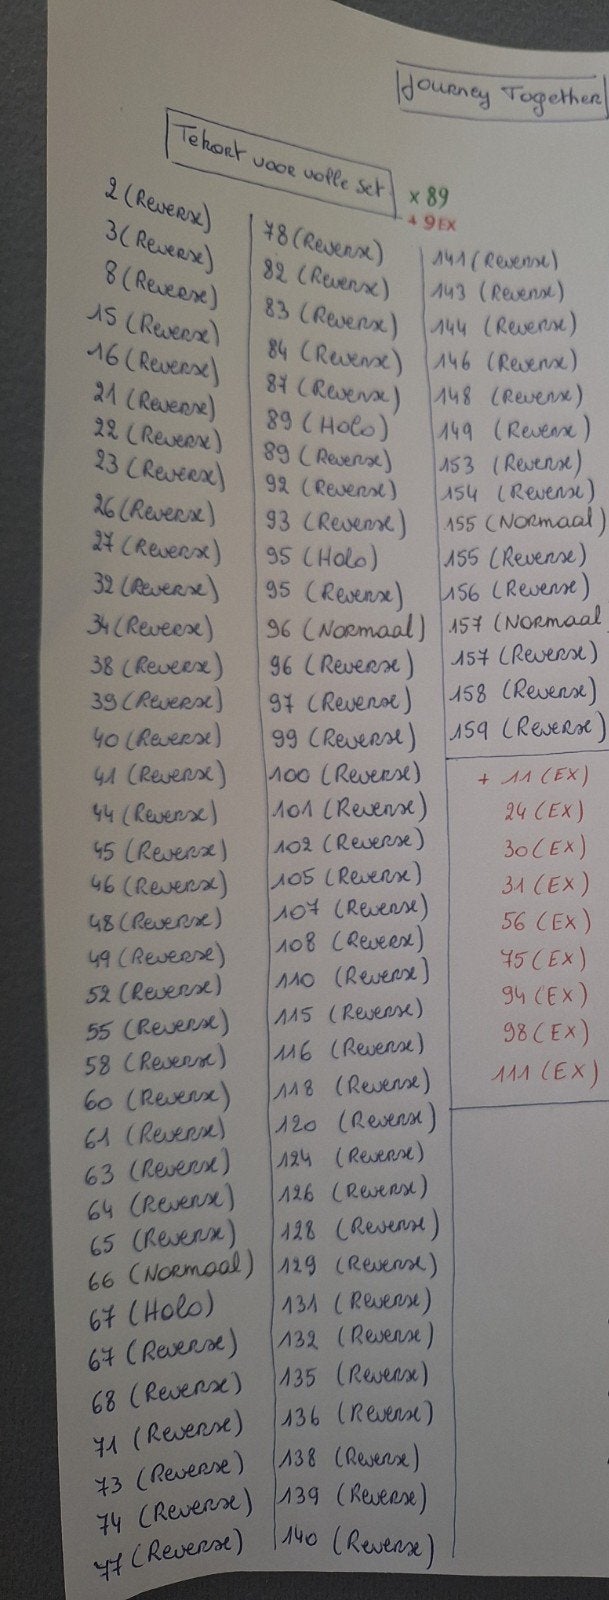 Journey Together
Tekort voor volle set
x 89
+ 9 EX
2 (Reverse)
3 (Reverse)
8 (Reverse)
15 (Reverse)
16 (Reverse)
21 (Reverse)
22 (Reverse)
23 (Reverse)
26 (Reverse)
27 (Reverse)
32 (Reverse)
34 (Reverse)
38 (Reverse)
39 (Reverse)
40 (Reverse)
41 (Reverse)
44 (Reverse)
45 (Reverse)
46 (Reverse)
48 (Reverse)
49 (Reverse)
52 (Reverse)
55 (Reverse)
58 (Reverse)
60 (Reverse)
61 (Reverse)
63 (Reverse)
64 (Reverse)
65 (Reverse)
66 (Normaal)
67 (Holo)
67 (Reverse)
68 (Reverse)
71 (Reverse)
73 (Reverse)
74 (Reverse)
77 (Reverse)
78 (Reverse)
82 (Reverse)
83 (Reverse)
84 (Reverse)
87 (Reverse)
89 (Holo)
89 (Reverse)
92 (Reverse)
93 (Reverse)
95 (Holo)
95 (Reverse)
96 (Normaal)
96 (Reverse)
97 (Reverse)
99 (Reverse)
100 (Reverse)
101 (Reverse)
102 (Reverse)
105 (Reverse)
107 (Reverse)
108 (Reverse)
110 (Reverse)
115 (Reverse)
116 (Reverse)
118 (Reverse)
120 (Reverse)
124 (Reverse)
126 (Reverse)
128 (Reverse)
129 (Reverse)
131 (Reverse)
132 (Reverse)
135 (Reverse)
136 (Reverse)
138 (Reverse)
139 (Reverse)
140 (Reverse)
141 (Reverse)
143 (Reverse)
144 (Reverse)
146 (Reverse)
148 (Reverse)
149 (Reverse)
153 (Reverse)
154 (Reverse)
155 (Normaal)
155 (Reverse)
156 (Reverse)
157 (Normaal
157 (Reverse)
158 (Reverse)
159 (Reverse)
+ 11 (EX)
24 (EX)
30 (EX)
31 (EX)
56 (EX)
75 (EX)
94 (EX)
98 (EX)
111 (EX)